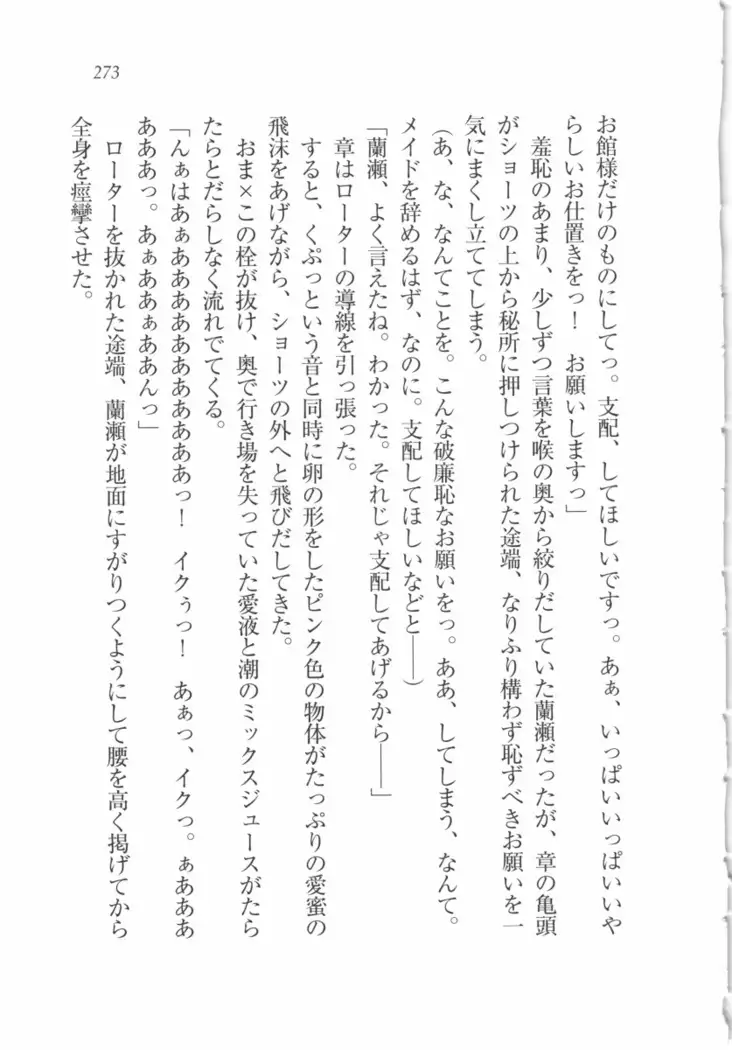 273
お館様だけのものにしてっ。支配、してほしいですっ。あぁ、いっぱいいっぱいいや
らしいお仕置きをっ！　お願いしますっ」
　羞恥のあまり、少しずつ言葉を喉の奥から絞りだしていた蘭瀬だったが、章の亀頭
がショーツの上から秘所に押しつけられた途端、なりふり構わず恥ずべきお願いを一
気にまくし立ててしまう。
（あ、な、なんてことを。こんな破廉恥なお願いをっ。ああ、してしまう、なんて。
メイドを辞めるはず、なのに。支配してほしいなどと――）
「蘭瀬、よく言えたね。わかった。それじゃ支配してあげるから――」
　章はローターの導線を引っ張った。
　すると、くぷっという音と同時に卵の形をしたピンク色の物体がたっぷりの愛蜜の
飛沫をあげながら、ショーツの外へと飛びだしてきた。
　おま×この栓が抜け、奥で行き場を失っていた愛液と潮のミックスジュースがたら
たらとだらしなく流れでてくる。
「んぁはあぁあああああああああああっ！　イクぅっ！　あぁっ、イクっ。ぁあああ
あああっ。あぁああぁああんっ」
　ローターを抜かれた途端、蘭瀬が地面にすがりつくようにして腰を高く掲げてから
全身を痙攣させた。